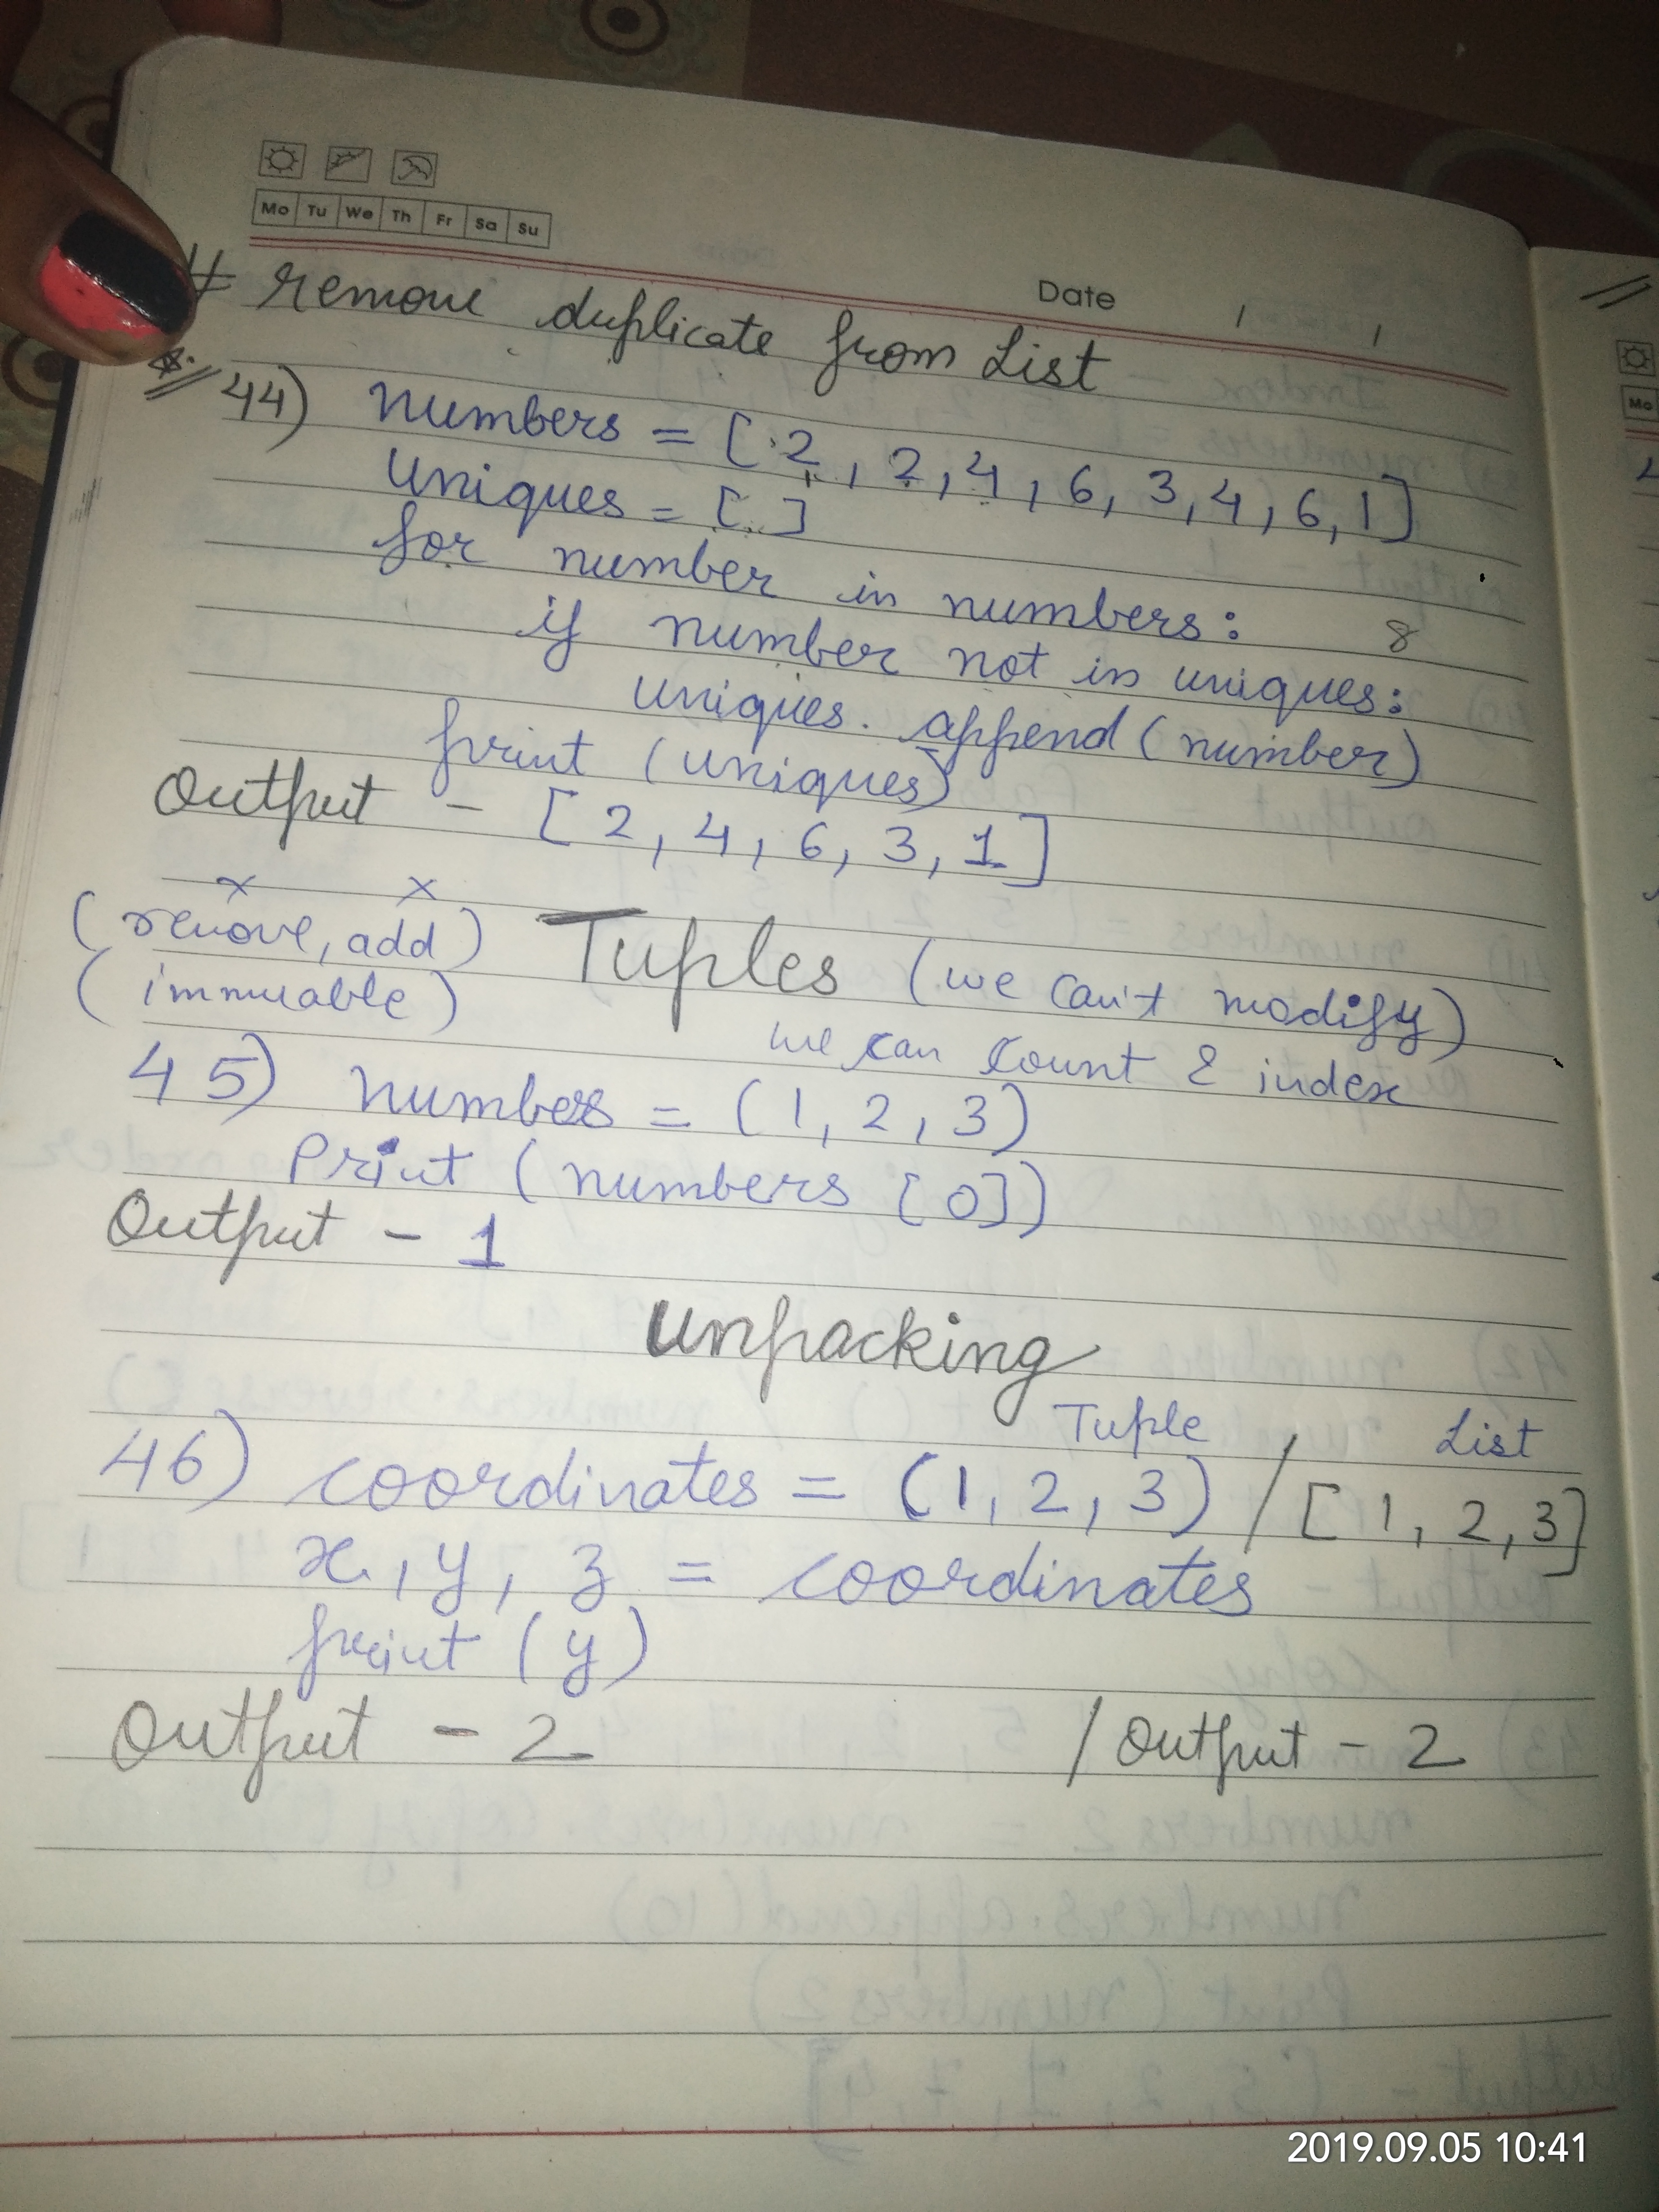 Mo Tu We Th Fr Sa Su
Date / /
# remove duplicate from List
44) numbers = [2, 2, 4, 6, 3, 4, 6, 1]
uniques = []
for number in numbers: 8
if number not in uniques:
uniques. append (number)
print (uniques)
Output - [2, 4, 6, 3, 1]
x x
(remove, add) Tuples (we can't modify)
(immuable) we can count & index
45) numbers = (1, 2, 3)
Print (numbers [0])
Output - 1
Unpacking
Tuple List
46) coordinates = (1, 2, 3) / [1, 2, 3]
x, y, z = coordinates
print (y)
Output - 2 / Output - 2
Mo
2019.09.05 10:41